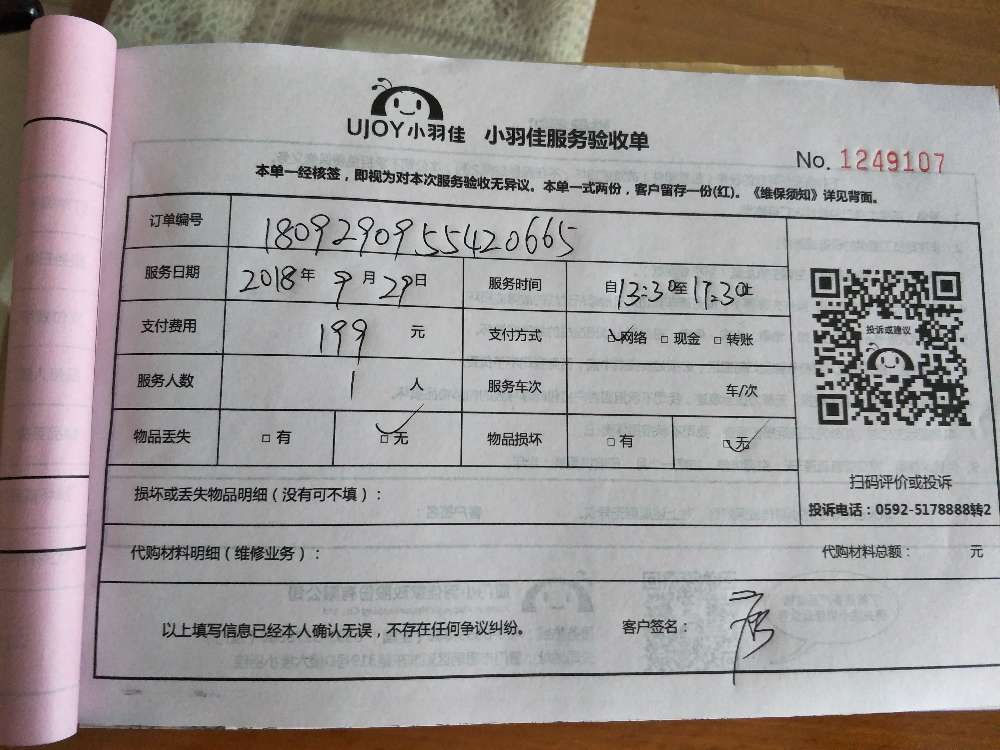 UJOY小羽佳 小羽佳服务验收单
No. 1249107
本单一经核签，即视为对本次服务验收无异议。本单一式两份，客户留存一份(红)。《维保须知》详见背面。
订单编号 1809290955420665
服务日期 2018年 9月 29日 服务时间 自13:30至17:30止
支付费用 199 元 支付方式 网络 现金 转账
投诉或建议
服务人数 1 人 服务车次 车/次
物品丢失 有 无 物品损坏 有 无
扫码评价或投诉
投诉电话：0592-5178888转2
损坏或丢失物品明细（没有可不填）：
代购材料明细（维修业务）： 代购材料总额： 元
以上填写信息已经本人确认无误，不存在任何争议纠纷。 客户签名：